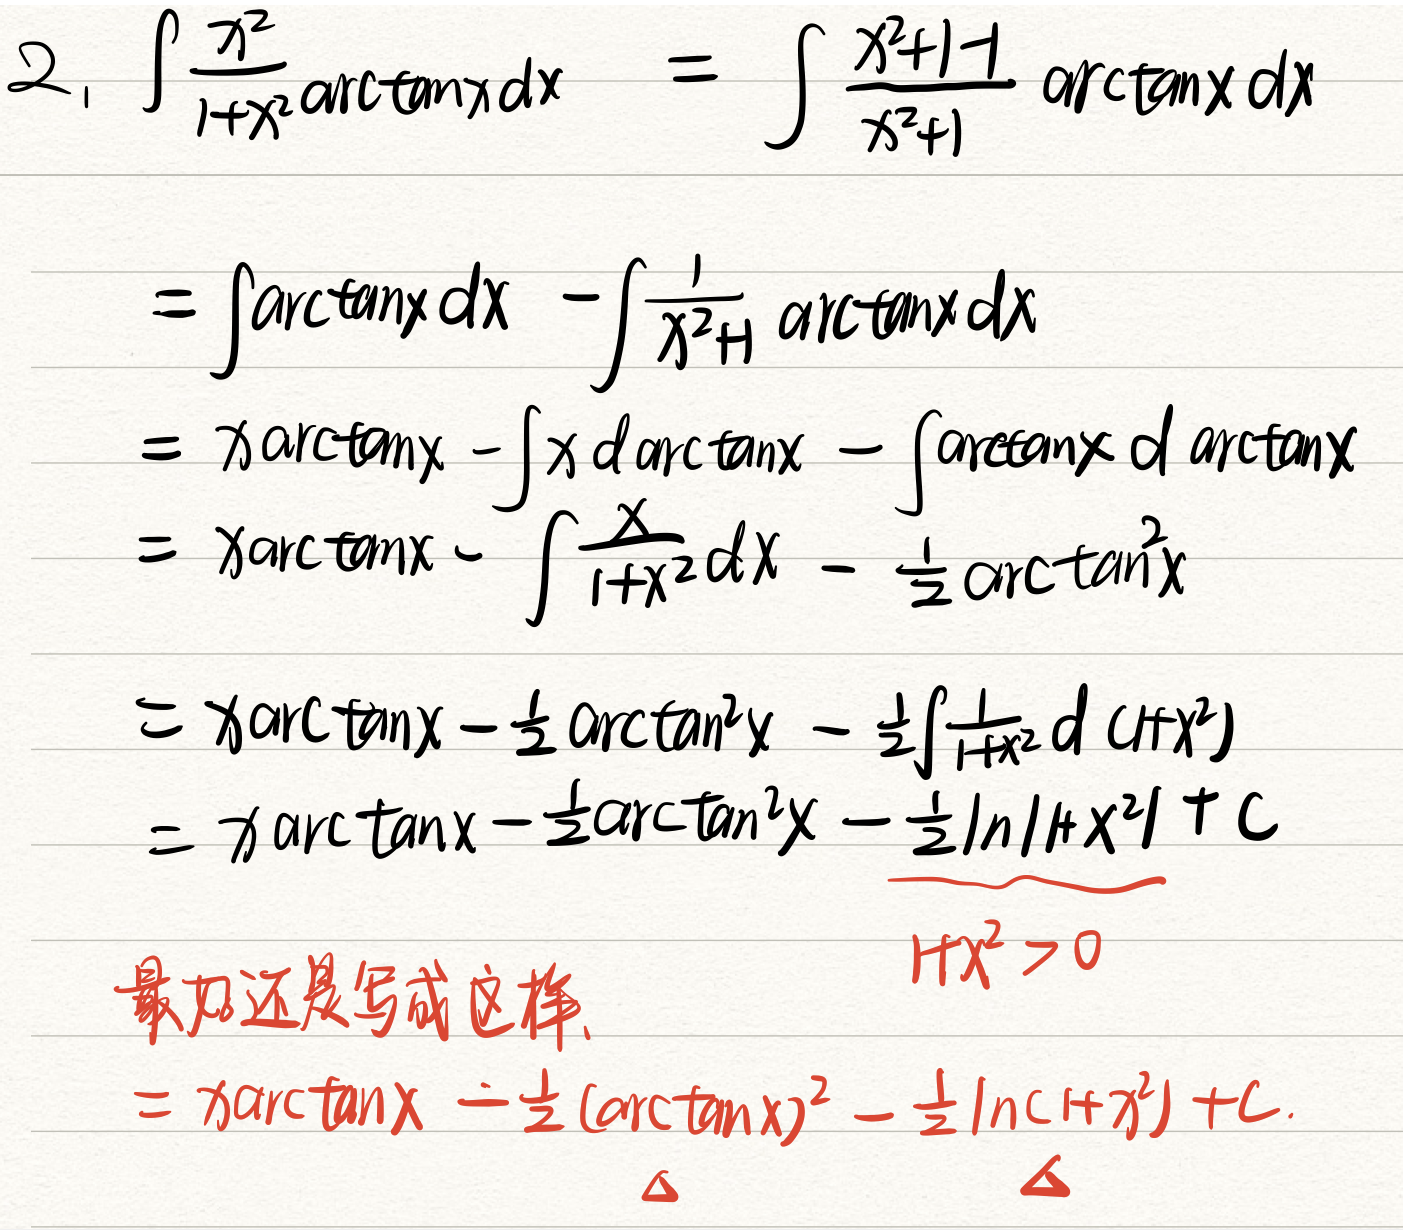 2. ∫ x²/(1+x²) arctanx dx = ∫ (x²+1-1)/(x²+1) arctanx dx
= ∫arctanx dx - ∫ 1/(x²+1) arctanx dx
= x arctanx - ∫x d arctanx - ∫arctanx d arctanx
= xarctanx - ∫ x/(1+x²) dx - 1/2 arctan²x
= xarctanx - 1/2 arctan²x - 1/2 ∫ 1/(1+x²) d (1+x²)
= x arctanx - 1/2 arctan²x - 1/2 ln|1+x²| + C
1+x² > 0
最好还是写成这样、
= xarctanx - 1/2 (arctanx)² - 1/2 ln(1+x²) + C.